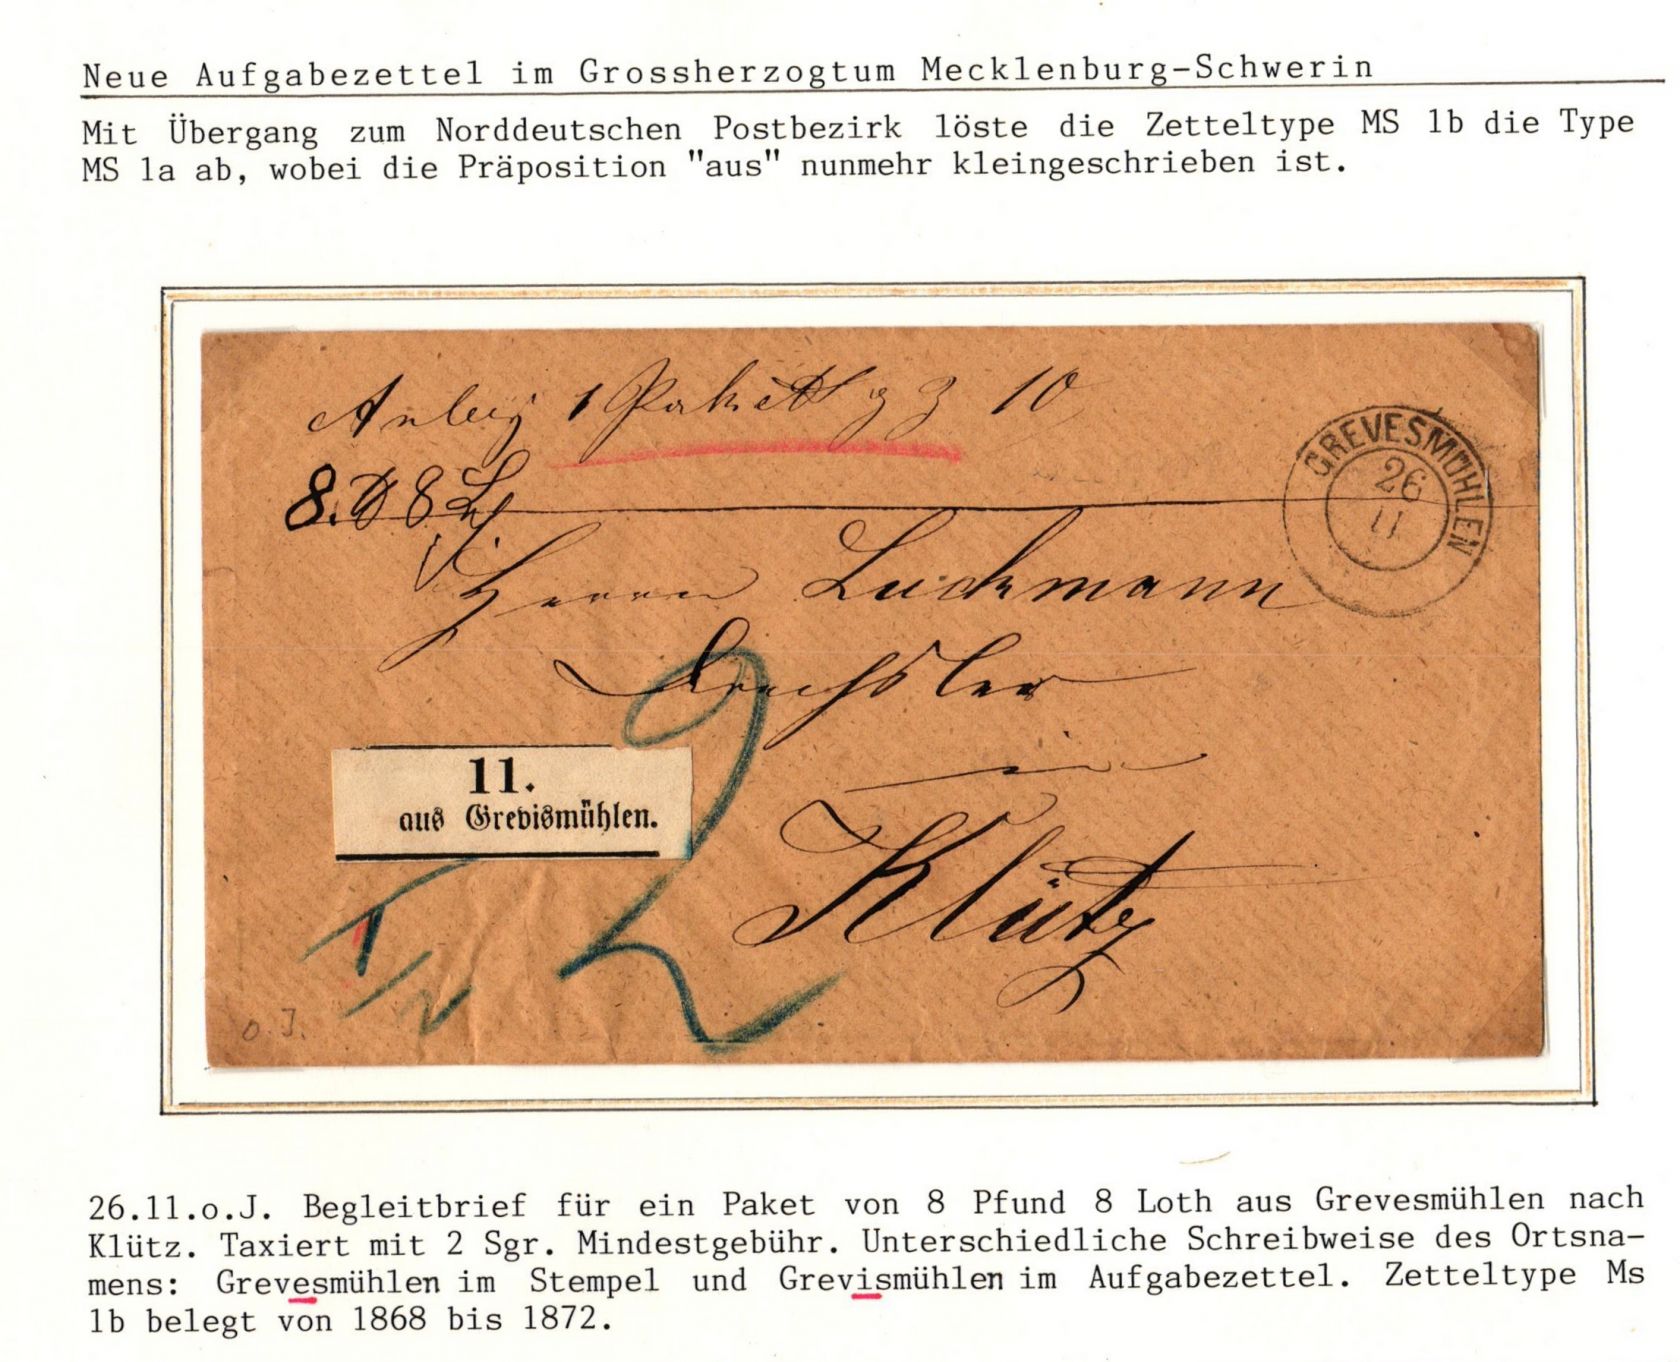 Neue Aufgabezettel im Grossherzogtum Mecklenburg-Schwerin
Mit Übergang zum Norddeutschen Postbezirk löste die Zetteltype MS 1b die Type
MS 1a ab, wobei die Präposition "aus" nunmehr kleingeschrieben ist.
Anbey 1 Paket g z 10
8. ℔ 8 L
GREVESMÜHLEN
26
11
Herrn Luckmann
Drechsler
in
11.
aus Grevismühlen.
Klütz
2
o. J.
26.11.o.J. Begleitbrief für ein Paket von 8 Pfund 8 Loth aus Grevesmühlen nach
Klütz. Taxiert mit 2 Sgr. Mindestgebühr. Unterschiedliche Schreibweise des Ortsna-
mens: Grevesmühlen im Stempel und Grevismühlen im Aufgabezettel. Zetteltype Ms
1b belegt von 1868 bis 1872.